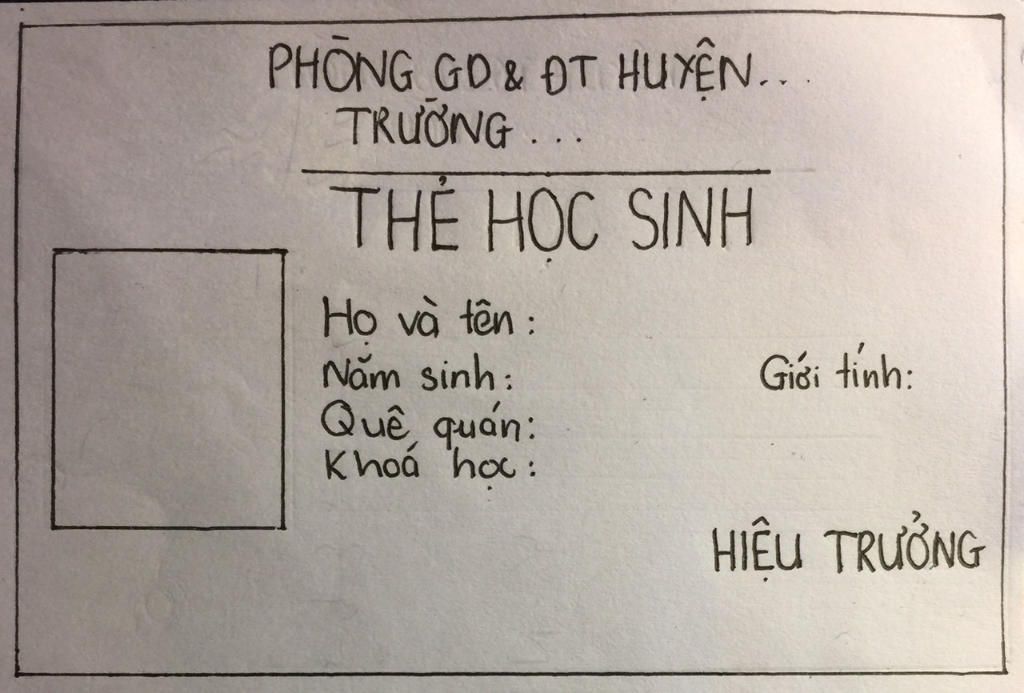 PHÒNG GD & ĐT HUYỆN...
TRƯỜNG...
THẺ HỌC SINH
Họ và tên:
Năm sinh: Giới tính:
Quê quán:
Khoá học:
HIỆU TRƯỞNG